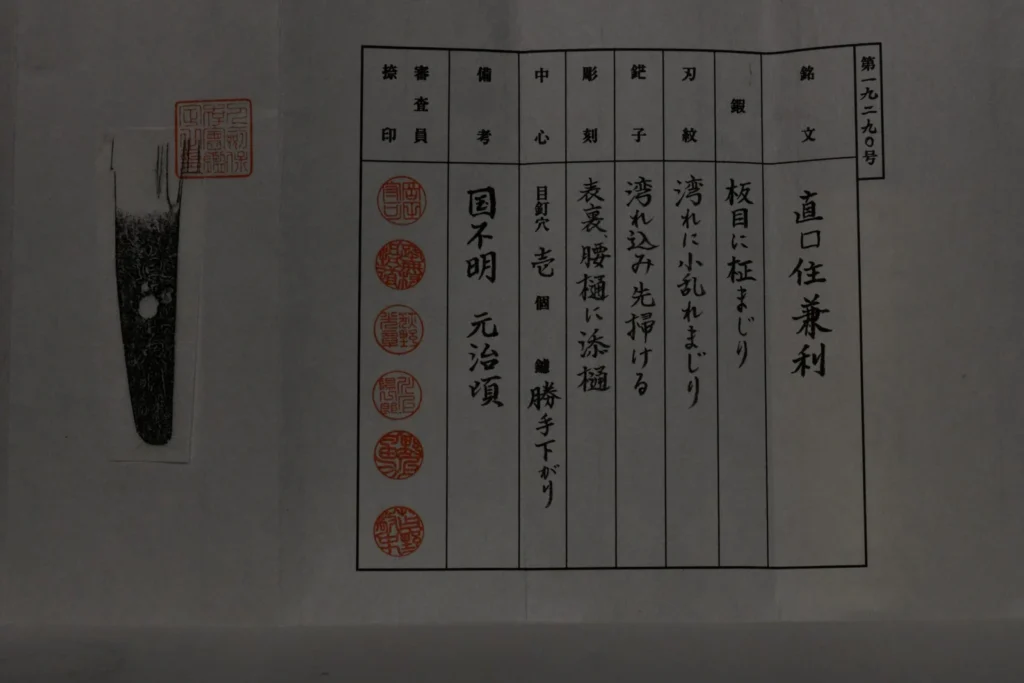 第一九二九〇号
銘文
直口住兼利
鍛
板目に柾まじり
刃紋
湾れに小乱れまじり
鋩子
湾れ込み先掃ける
彫刻
表裏、腰樋に添樋
中心
目釘穴 壱 個 鑢 勝手下がり
備考
国不明 元治頃
審査員
捺印